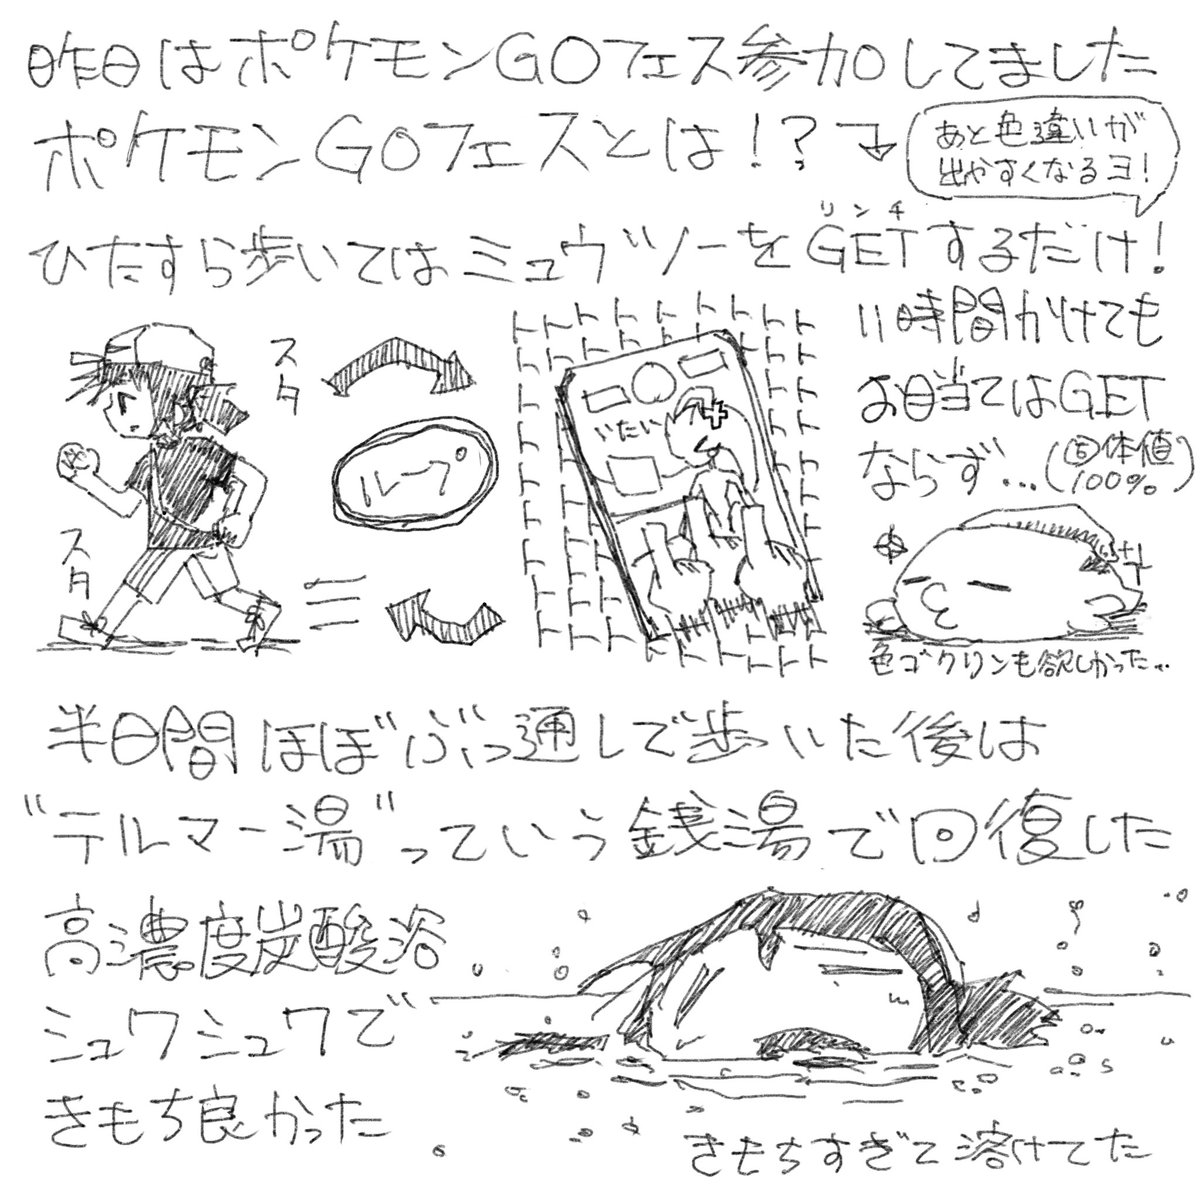 昨日はポケモンGOフェス参加してました
ポケモンGOフェスとは!?
あと色違いが
出やすくなるヨ!
リンチ
ひたすら歩いてはミュウツーをGETするだけ!
スタ
スタ
ループ
トトトトトトト
いたい
11時間かけても
お目当てはGET
ならず…(個体値100%)
色ゴクリンも欲しかった…
半日間ほぼぶっ通しで歩いた後は
"テルマー湯"っていう銭湯で回復した
高濃度炭酸浴
シュワシュワで
きもち良かった
きもちすぎて溶けてた